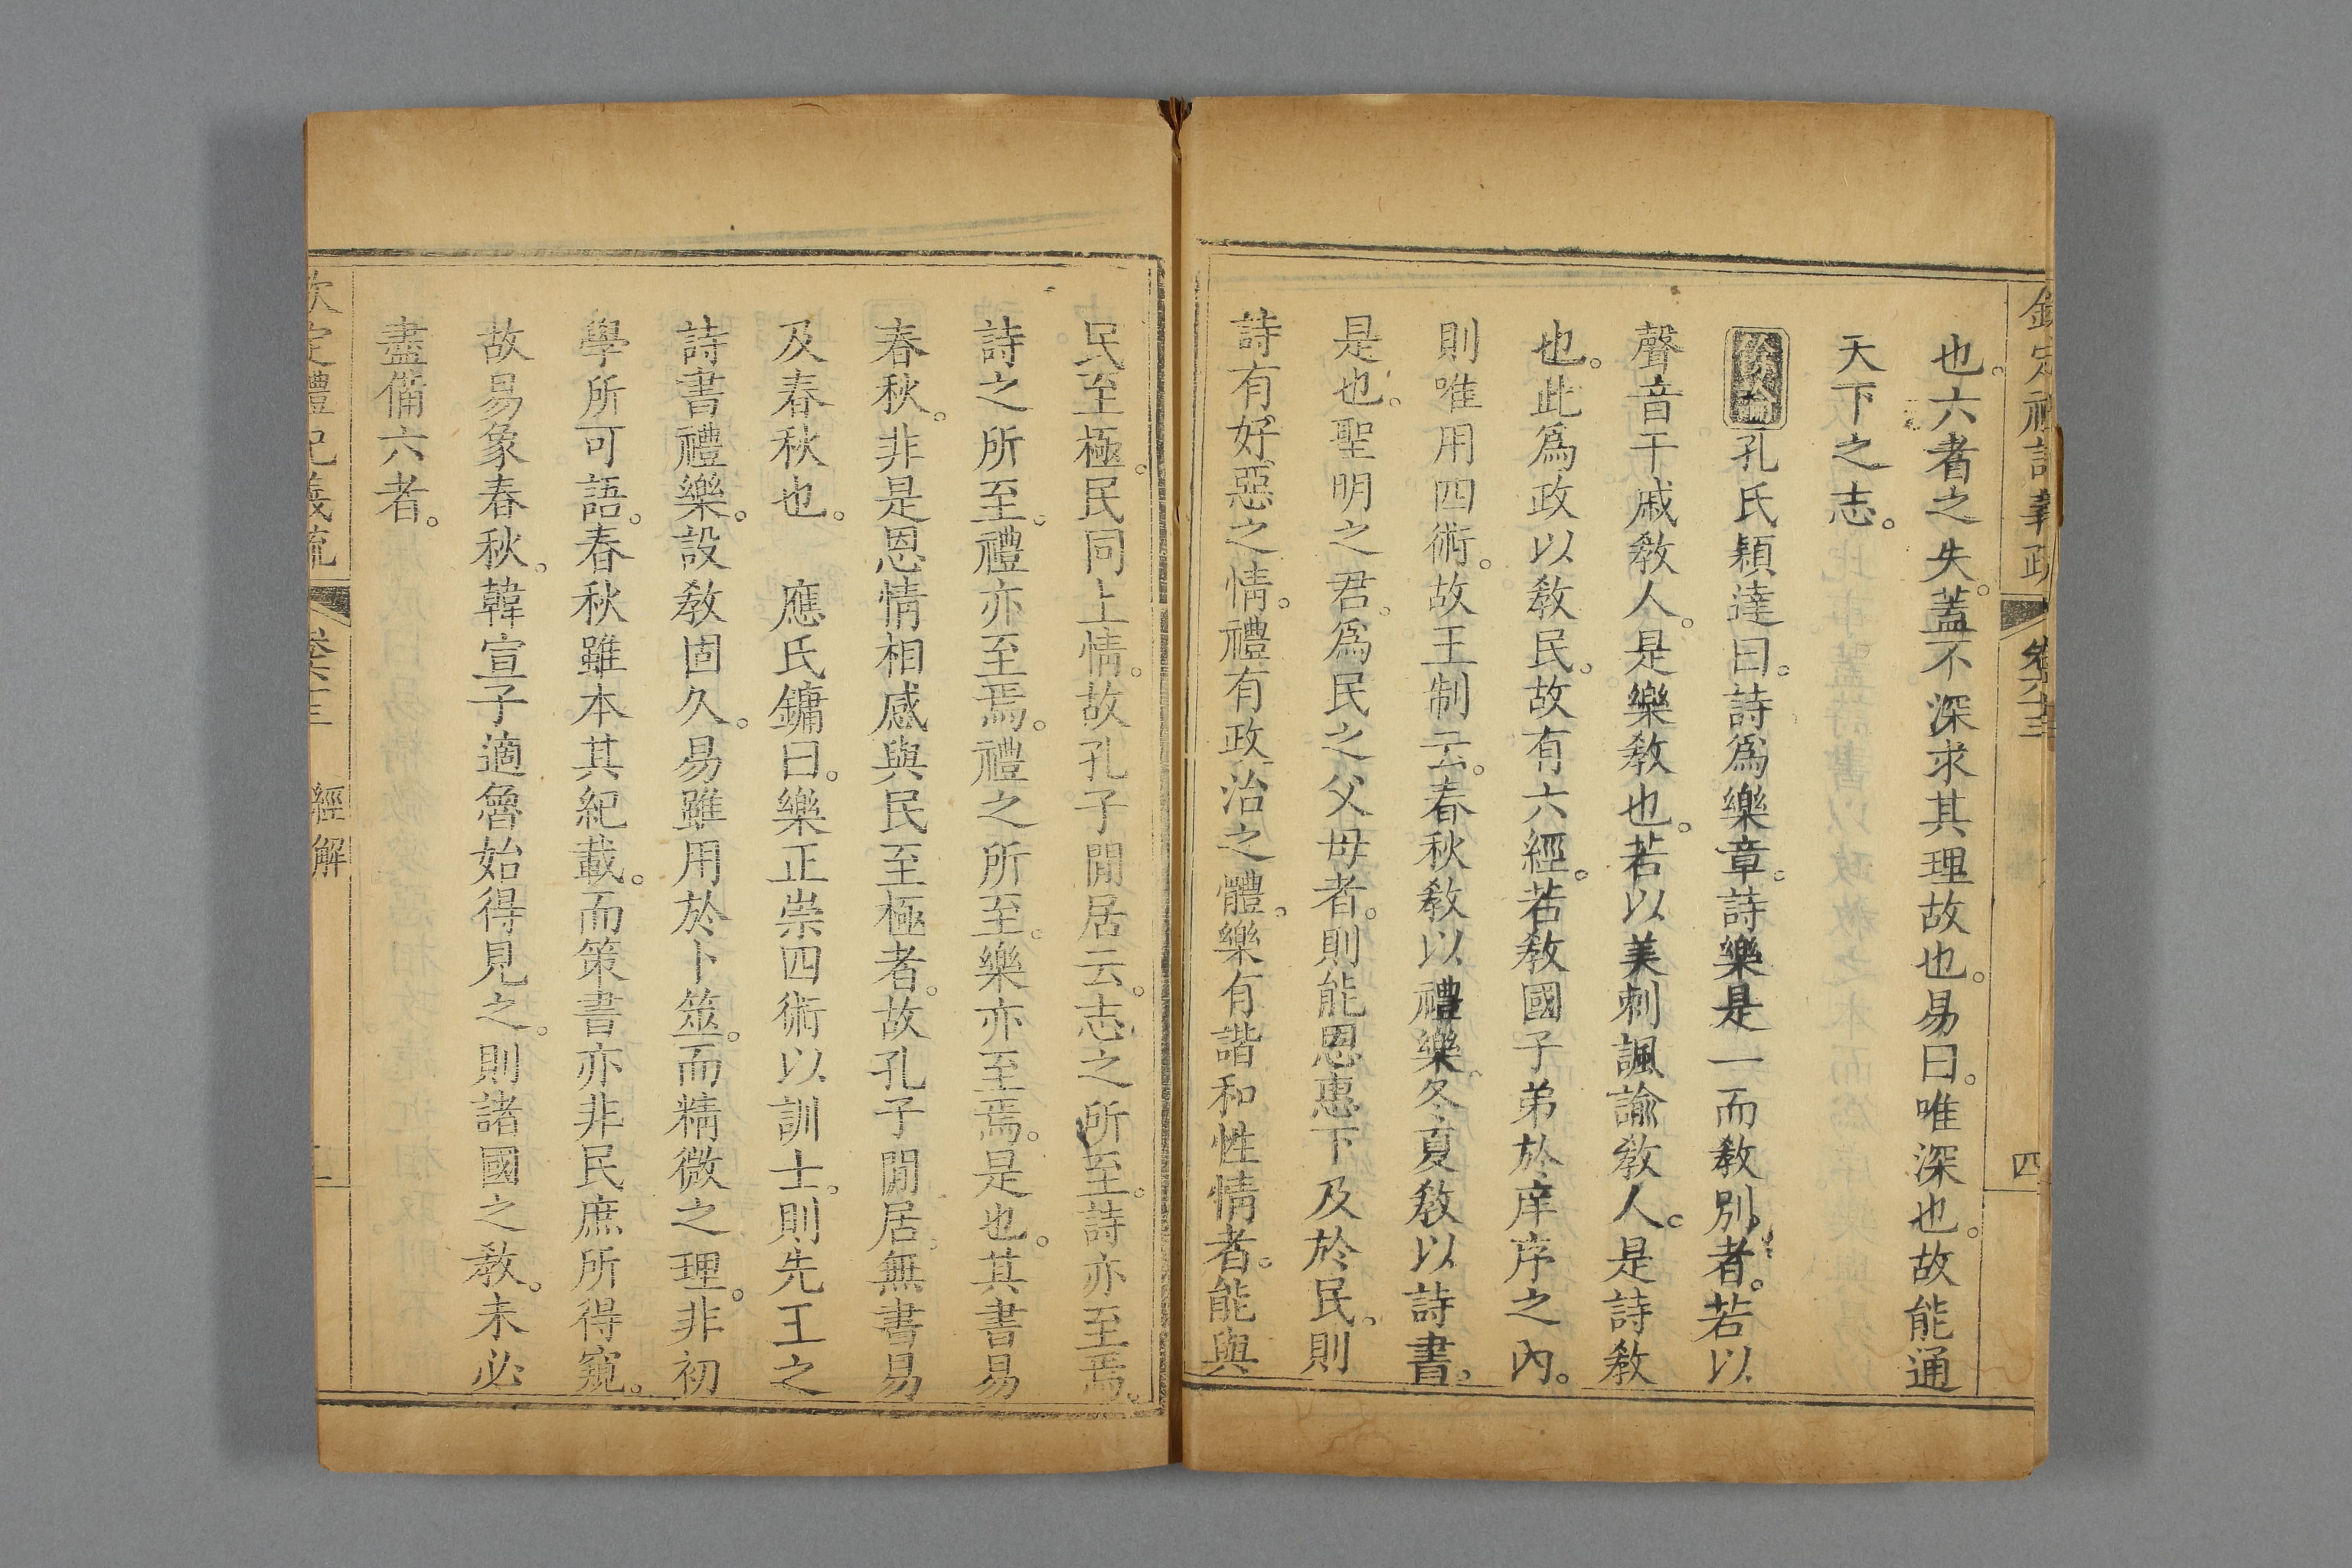 欽定禮記義疏 卷六十三 四
也。六者之失。蓋不深求其理故也。易曰。唯深也。故能通
天下之志。
餘論孔氏穎達曰。詩爲樂章。詩樂是一而敎別者。若以
聲音干戚敎人。是樂敎也。若以美刺諷諭敎人。是詩敎
也。此爲政以敎民。故有六經。若敎國子弟於庠序之內。
則唯用四術。故王制云。春秋敎以禮樂。冬夏敎以詩書。
是也。聖明之君。爲民之父母者。則能恩惠下及於民。則
詩有好惡之情。禮有政治之體。樂有諧和性情者。能與
民至極。民同上情。故孔子閒居云。志之所至。詩亦至焉。
詩之所至。禮亦至焉。禮之所至。樂亦至焉。是也。其書易
春秋。非是恩情相感與民至極者。故孔子閒居。無書易
及春秋也。 應氏鏞曰。樂正崇四術以訓士。則先王之
詩書禮樂。設敎固久。易雖用於卜筮。而精微之理。非初
學所可語。春秋雖本其紀載。而策書亦非民庶所得窺。
故易象春秋。韓宣子適魯始得見之。則諸國之敎。未必
盡備六者。
欽定禮記義疏 卷六十三 經解